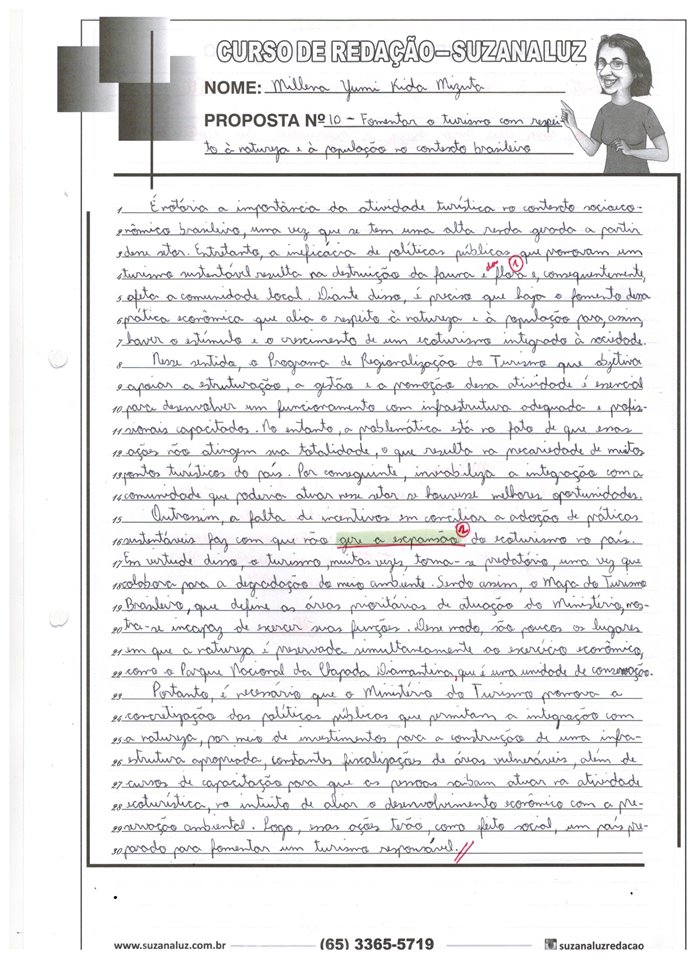 CURSO DE REDAÇÃO–SUZANA LUZ
NOME: Millena Yumi Kida Mizuta
PROPOSTA Nº 10 - Fomentar o turismo com respei-
to à natureza e à população no contexto brasileiro
1 É notória a importância da atividade turística no contexto socioeco-
2 nômico brasileiro, uma vez que se tem uma alta renda gerada a partir
3 desse setor. Entretanto, a ineficácia de políticas públicas que promovam um
4 turismo sustentável resulta na destruição da fauna e da flora 1 e, consequentemente,
5 afeta a comunidade local. Diante disso, é preciso que haja o fomento dessa
6 prática econômica que alia o respeito à natureza e à população para, assim,
7 haver o estímulo e o crescimento de um ecoturismo integrado à sociedade.
8 Nesse sentido, o Programa de Regionalização do Turismo que objetiva
9 apoiar a estruturação, a gestão e a promoção dessa atividade é essencial
10 para desenvolver um funcionamento com infraestrutura adequada e profis-
11 sionais capacitados. No entanto, a problemática está no fato de que essas
12 ações não atingem sua totalidade, o que resulta na precariedade de muitos
13 pontos turísticos do país. Por conseguinte, inviabiliza a integração com a
14 comunidade que poderia atuar nesse setor se houvesse melhores oportunidades.
15 Outrossim, a falta de incentivos em conciliar a adoção de práticas
16 sustentáveis faz com que não gere a expansão 2 do ecoturismo no país.
17 Em virtude disso, o turismo, muitas vezes, torna-se predatório, uma vez que
18 colabora para a degradação do meio ambiente. Sendo assim, o Mapa do Turismo
19 Brasileiro, que define as áreas prioritárias de atuação do Ministério, mos-
20 tra-se incapaz de exercer suas funções. Desse modo, são poucos os lugares
21 em que a natureza é preservada simultaneamente ao exercício econômico,
22 como o Parque Nacional da Chapada Diamantina, que é uma unidade de conservação.
23 Portanto, é necessário que o Ministério do Turismo promova a
24 concretização das políticas públicas que permitam a integração com
25 a natureza, por meio de investimentos para a construção de uma infra-
26 estrutura apropriada, constantes fiscalizações de áreas vulneráveis, além de
27 cursos de capacitação para que as pessoas saibam atuar na atividade
28 ecoturística, no intuito de aliar o desenvolvimento econômico com a pre-
29 servação ambiental. Logo, essas ações terão, como efeito social, um país pre-
30 parado para fomentar um turismo responsável.
www.suzanaluz.com.br (65) 3365-5719 suzanaluzredacao